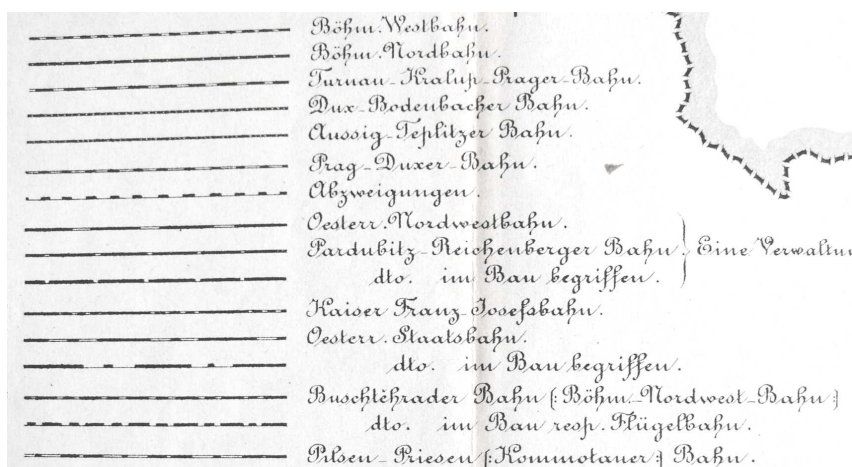 Böhm. Westbahn.
Böhm. Nordbahn.
Turnau-Kralup-Prager-Bahn.
Dux-Bodenbacher Bahn.
Aussig-Teplitzer Bahn.
Prag-Duxer-Bahn.
Abzweigungen.
Oesterr. Nordwestbahn.
Pardubitz-Reichenberger Bahn. Eine Verwaltun
dto. im Bau begriffen.
Kaiser Franz-Josefsbahn.
Oesterr. Staatsbahn.
dto. im Bau begriffen.
Buschtěhrader Bahn [:Böhm.-Nordwest-Bahn:]
dto. im Bau resp. Flügelbahn.
Pilsen-Priesen [:Kommotauer:] Bahn.